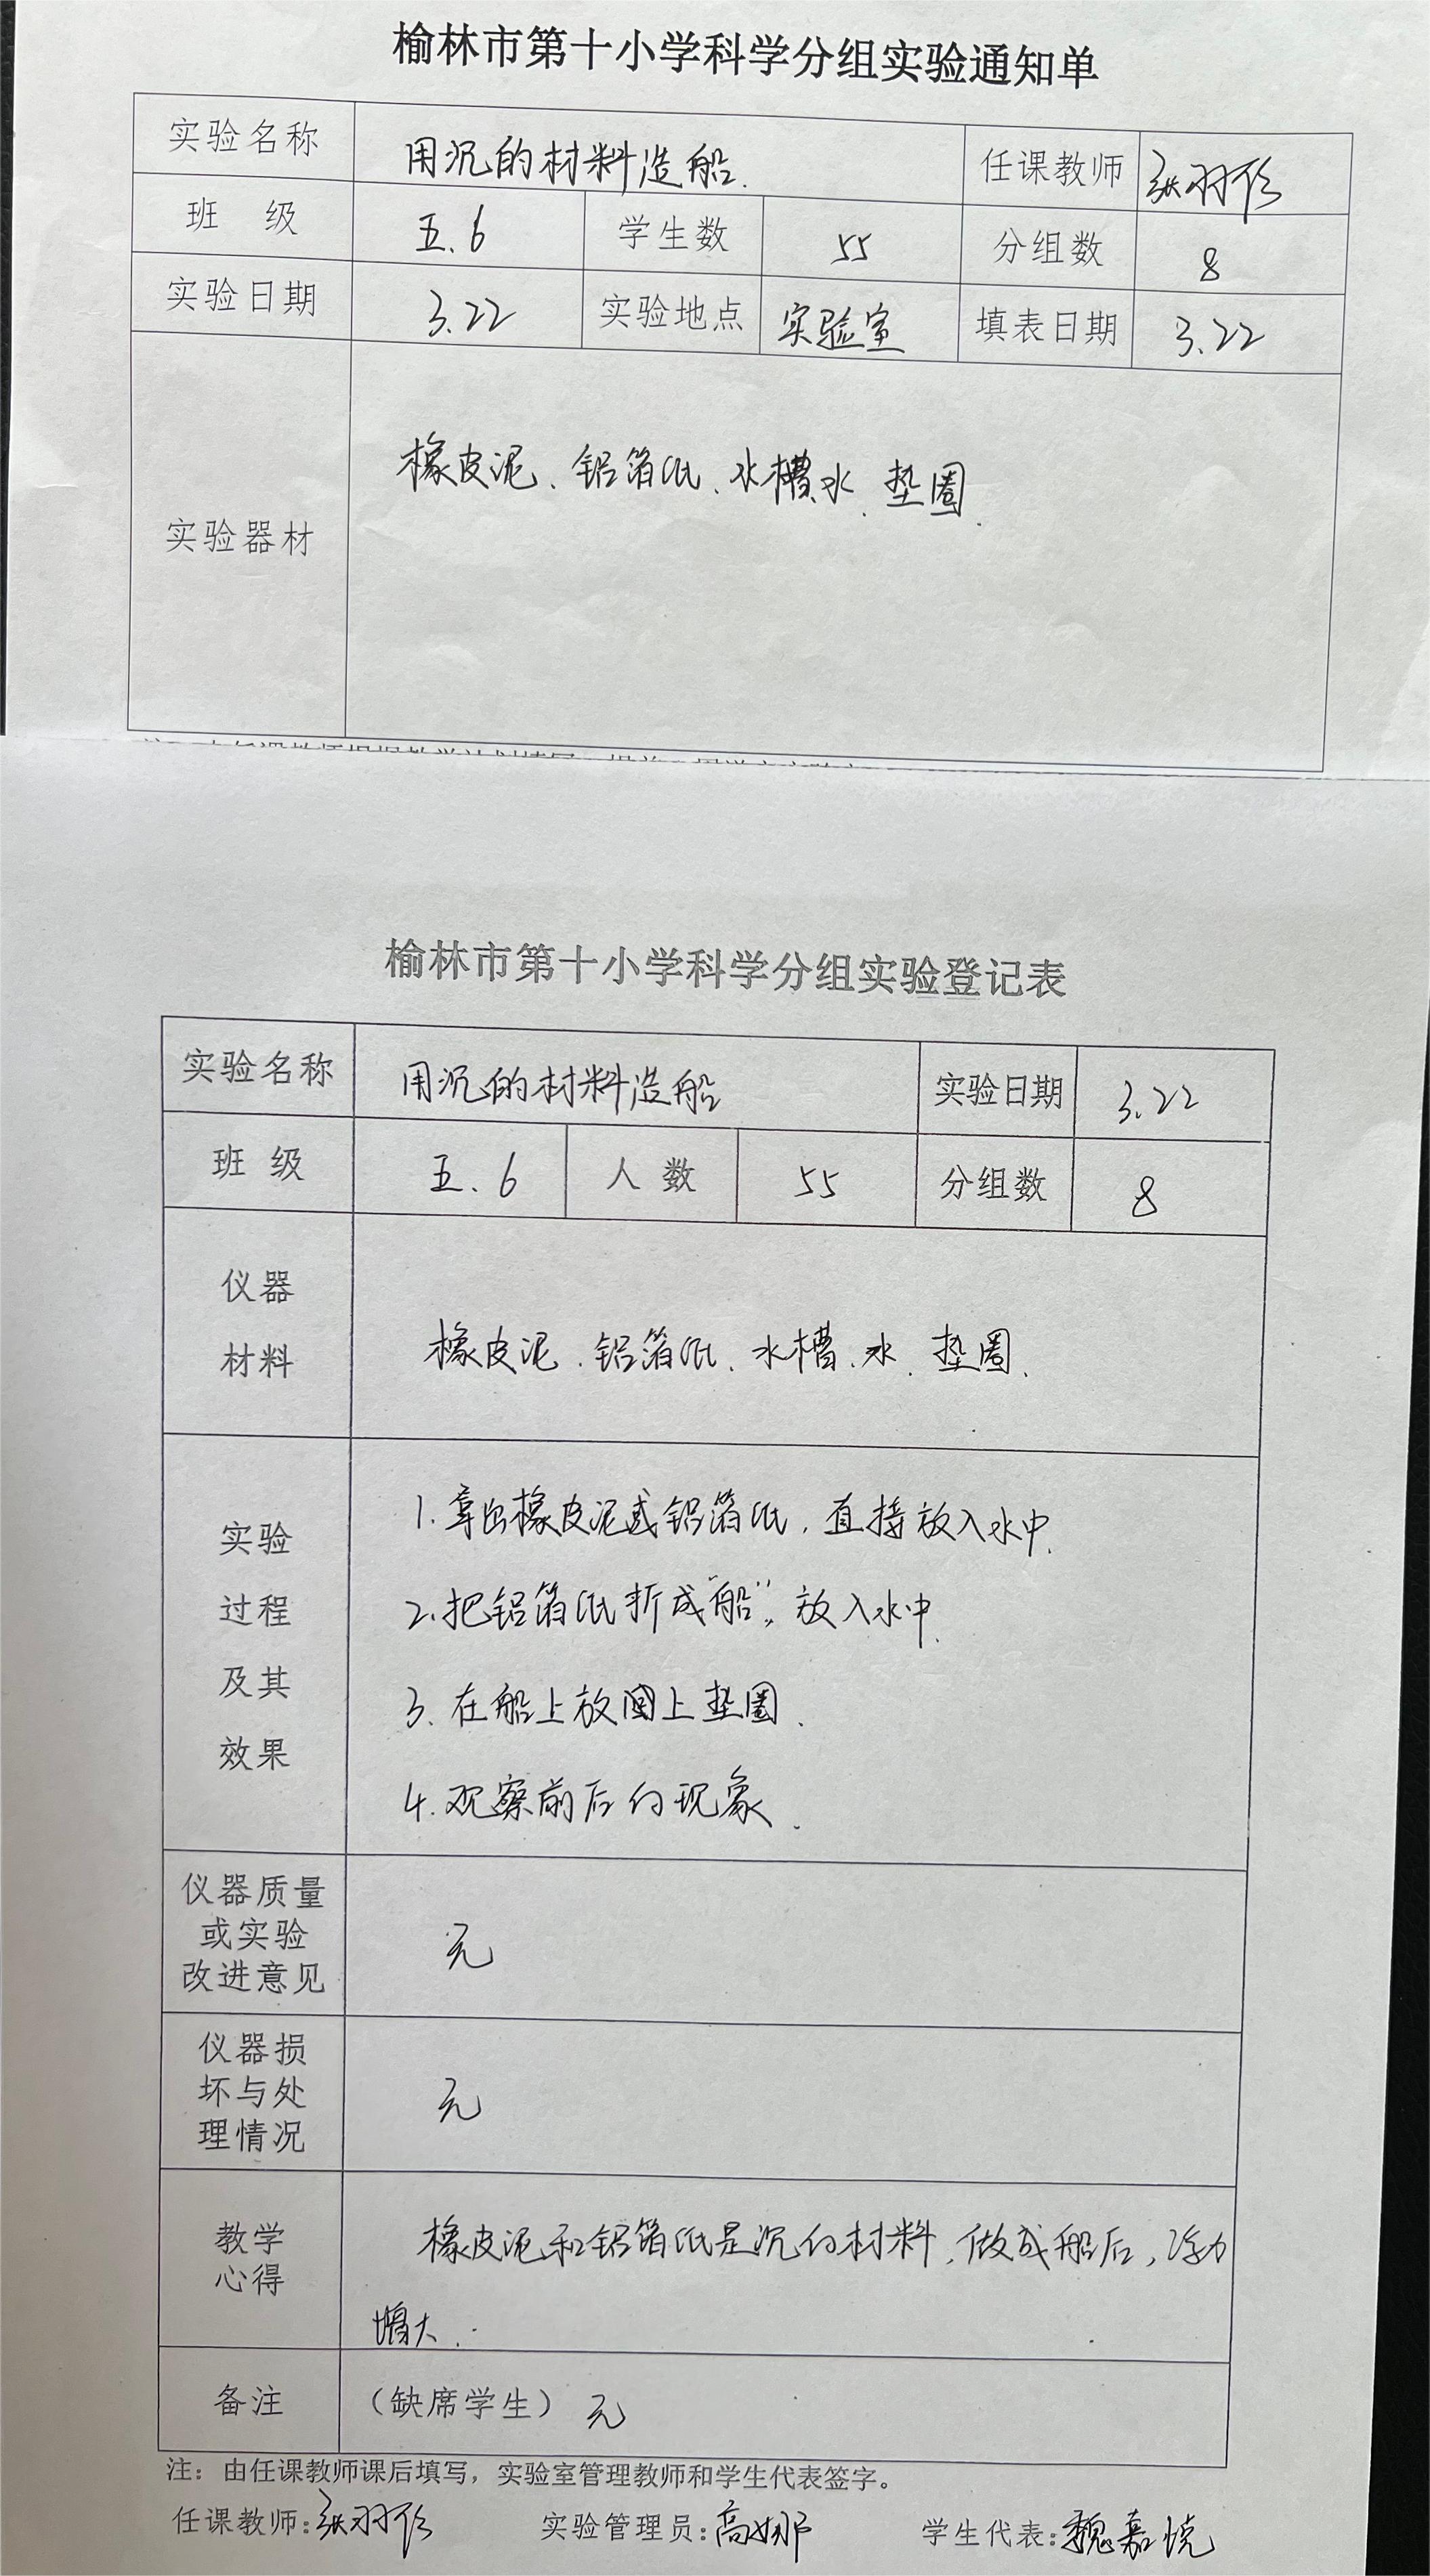 榆林市第十小学科学分组实验通知单
实验名称 用沉的材料造船. 任课教师 张羽
班 级 五.6 学生数 55 分组数 8
实验日期 3.22 实验地点 实验室 填表日期 3.22
实验器材 橡皮泥、铝箔纸、水槽水、垫圈.
榆林市第十小学科学分组实验登记表
实验名称 用沉的材料造船 实验日期 3.22
班 级 五.6 人 数 55 分组数 8
仪器
材料
橡皮泥、铝箔纸、水槽、水、垫圈.
实验
过程
及其
效果
1.拿出橡皮泥或铝箔纸,直接放入水中.
2.把铝箔纸折成“船”,放入水中.
3.在船上放上垫圈.
4.观察前后的现象.
仪器质量
或实验
改进意见
无
仪器损
坏与处
理情况
无
教学
心得
橡皮泥和铝箔纸是沉的材料,做成船后,浮力
增大.
备注 (缺席学生) 无
注:由任课教师课后填写,实验室管理教师和学生代表签字。
任课教师:张羽 实验管理员:高娜 学生代表:魏嘉